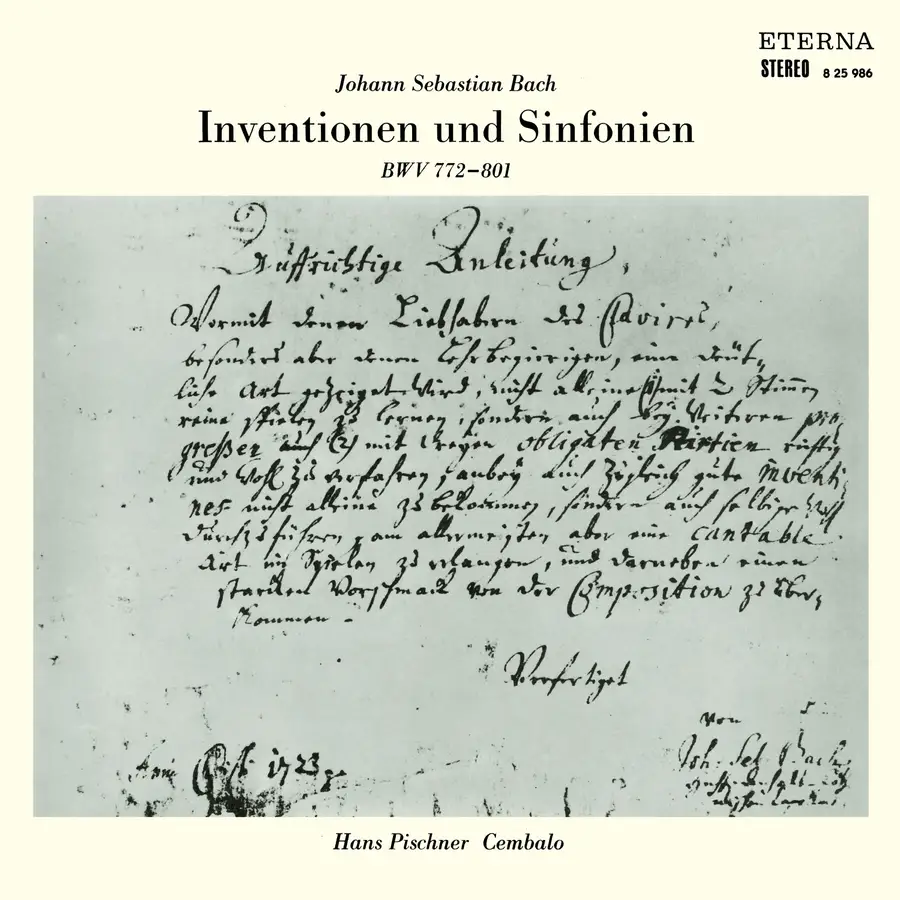 ETERNA
STEREO 8 25 986
Johann Sebastian Bach
Inventionen und Sinfonien
BWV 772–801
Auffrichtige Anleitung,
Wormit denen Liebhabern des Clavires,
besonders aber denen Lehrbegierigen, eine deüt-
liche Art gezeiget wird, nicht alleine (1) mit 2 Stimen
reine spielen zu lernen, sondern auch bey weiteren pro-
greßen auch (2) mit dreyen obligaten Partien richtig
und wohl zu verfahren, anbey auch zugleich gute inventi-
nes nicht alleine zu bekommen, sondern auch selbige wohl
durchzuführen, am allermeisten aber eine cantable
Art im Spielen zu erlangen, und darneben einen
starcken Vorschmack von der Composition zu über-
kommen.
Verfertiget
von
Joh. Seb. Bach
Anno Christi 1723.
Hans Pischner Cembalo